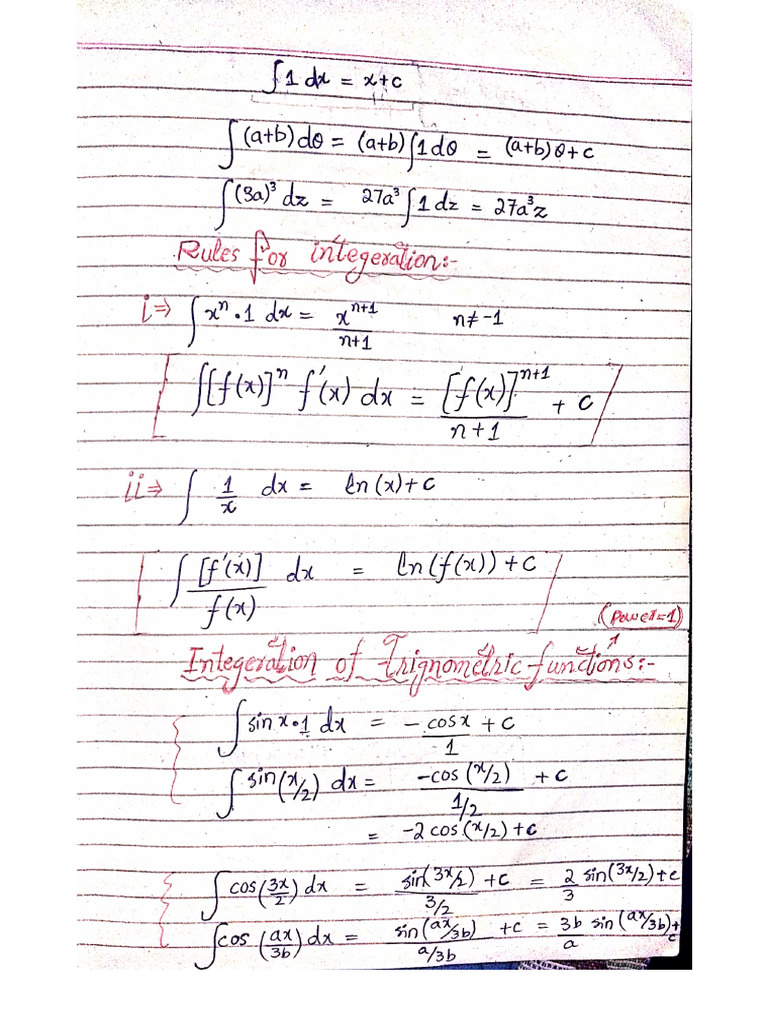 ∫1 dx = x+c
∫(a+b)dθ = (a+b)∫1dθ = (a+b)θ+c
∫(3a)³ dz = 27a³∫1 dz = 27a³z
Rules for integeration:-
i⇒ ∫xⁿ•1 dx = xⁿ⁺¹/n+1 n≠-1
∫[f(x)]ⁿ f'(x) dx = [f(x)]ⁿ⁺¹/n+1 + c
ii⇒ ∫ 1/x dx = ln(x)+c
∫ [f'(x)]/f(x) dx = ln(f(x))+c
(Power=1)
Integeration of Trignometric functions:-
∫sinx•1 dx = -cosx/1 + c
∫sin(x/2) dx = -cos(x/2)/1/2 + c
= -2cos(x/2)+c
∫cos(3x/2)dx = sin(3x/2)/3/2 + c = 2/3 sin(3x/2)+c
∫cos(ax/3b)dx = sin(ax/3b)/a/3b + c = 3b/a sin(ax/3b)+c